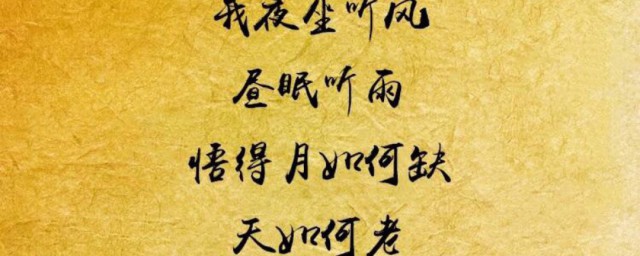 我夜坐听风
昼眠听雨
悟得月如何缺
天如何老